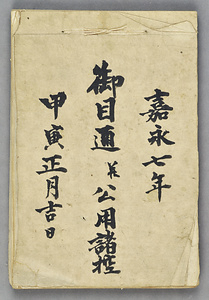 嘉永七年
御目通並公用諸控
甲寅正月吉日